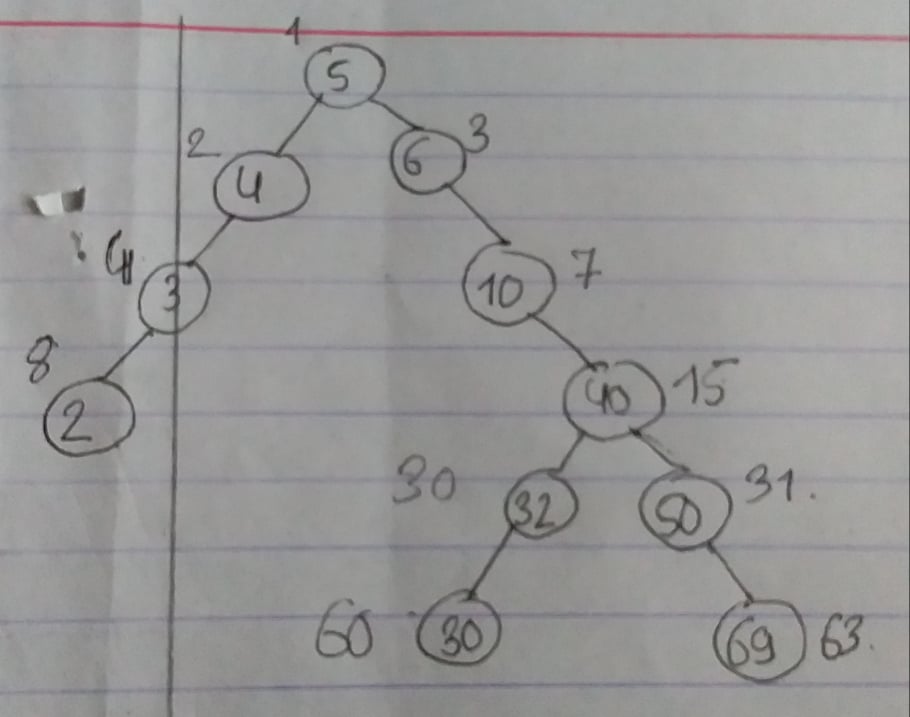 1
5
2 4 6 3
4 3 10 7
8 2 40 15
30 32 50 31.
60 30 69 63.